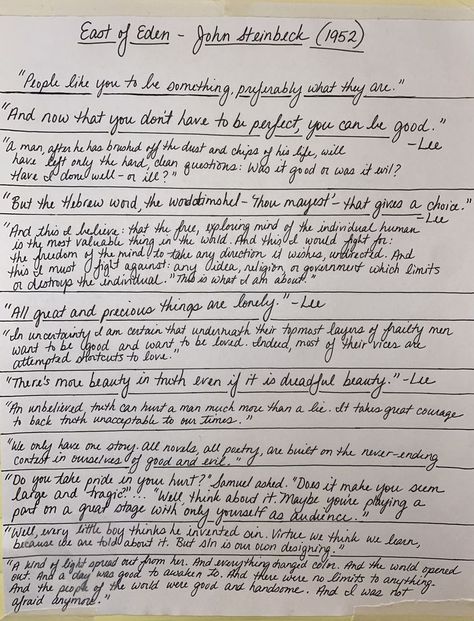 East of Eden - John Steinbeck (1952)
"People like you to be something, preferably what they are."
"And now that you don't have to be perfect, you can be good."
-Lee
"A man, after he has brushed off the dust and chips of his life, will
have left only the hard, clean questions: Was it good or was it evil?
Have I done well - or ill?"
"But the Hebrew word, the word timshel - 'Thou mayest' - that gives a choice."
-Lee
"And this I believe: that the free, exploring mind of the individual human
is the most valuable thing in the world. And this I would fight for:
the freedom of the mind to take any direction it wishes, undirected. And
this I must fight against: any idea, religion or government which limits
or destroys the individual. "This is what I am about."
"All great and precious things are lonely." -Lee
"In uncertainty I am certain that underneath their topmost layers of frailty men
want to be good and want to be loved. Indeed, most of their vices are
attempted shortcuts to love."
"There's more beauty in truth even if it is dreadful beauty." -Lee
"An unbelieved truth can hurt a man much more than a lie. It takes great courage
to back truth unacceptable to our times."
"We only have one story. All novels, all poetry, are built on the never-ending
contest in ourselves of good and evil."
"Do you take pride in your hurt?" Samuel asked. "Does it make you seem
large and tragic?"... "Well think about it. Maybe you're playing a
part on a great stage with only yourself as audience."
"Well, every little boy thinks he invented sin. Virtue we think we learn,
because we are told about it. But sin is our own designing."
"A kind of light spread out from her. And everything changed color. And the world opened
out. And a day was good to awaken to. And there were no limits to anything.
And the people of the world were good and handsome. And I was not
afraid anymore."